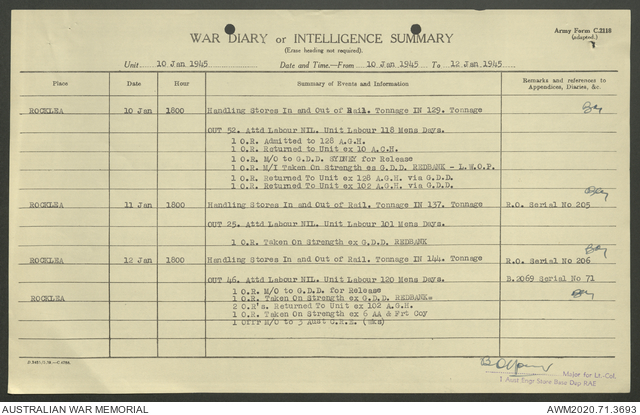 Army Form C.2118
(adapted.)
WAR DIARY or INTELLIGENCE SUMMARY
(Erase heading not required).
Unit 10 Jan 1945 Date and Time.—From 10 Jan 1945 To 12 Jan 1945
Place Date Hour Summary of Events and Information Remarks and references to Appendices, Diaries, &c.
ROCKLEA 10 Jan 1800 Handling Stores In and Out of Rail. Tonnage IN 129. Tonnage
OUT 52. Attd Labour NIL. Unit Labour 118 Mens Days.
1 O.R. Admitted to 128 A.G.H.
1 O.R. Returned to Unit ex 10 A.C.H.
1 O.R. M/O to G.D.D. SYDNEY for Release
1 O.R. M/I Taken On Strength es G.D.D. REDBANK - L.W.O.P.
1 O.R. Returned To Unit ex 128 A.G.H. via G.D.D.
1 O.R. Returned To Unit ex 102 A.G.H. via G.D.D.
ROCKLEA 11 Jan 1800 Handling Stores In and Out of Rail. Tonnage IN 137. Tonnage R.O. Serial No 205
OUT 25. Attd Labour NIL. Unit Labour 101 Mens Days.
1 O.R. Taken On Strength ex G.D.D. REDBANK
ROCKLEA 12 Jan 1800 Handling Stores In and Out of Rail. Tonnage IN 144. Tonnage R.O. Serial No 206
OUT 46. Attd Labour NIL. Unit Labour 120 Mens Days. B.2069 Serial No 71
1 O.R. M/O to G.D.D. for Release
ROCKLEA 1 O.R. Taken On Strength ex G.D.D. REDBANK.
2 O.R's. Returned To Unit ex 102 A.G.H.
1 O.R. Taken On Strength ex 6 AA & Frt Coy
1 Offr M/O to 3 Aust C.R.E. (Wks)
Major for Lt-Col.
1 Aust Engr Store Base Dep RAE
AUSTRALIAN WAR MEMORIAL AWM2020.71.3693